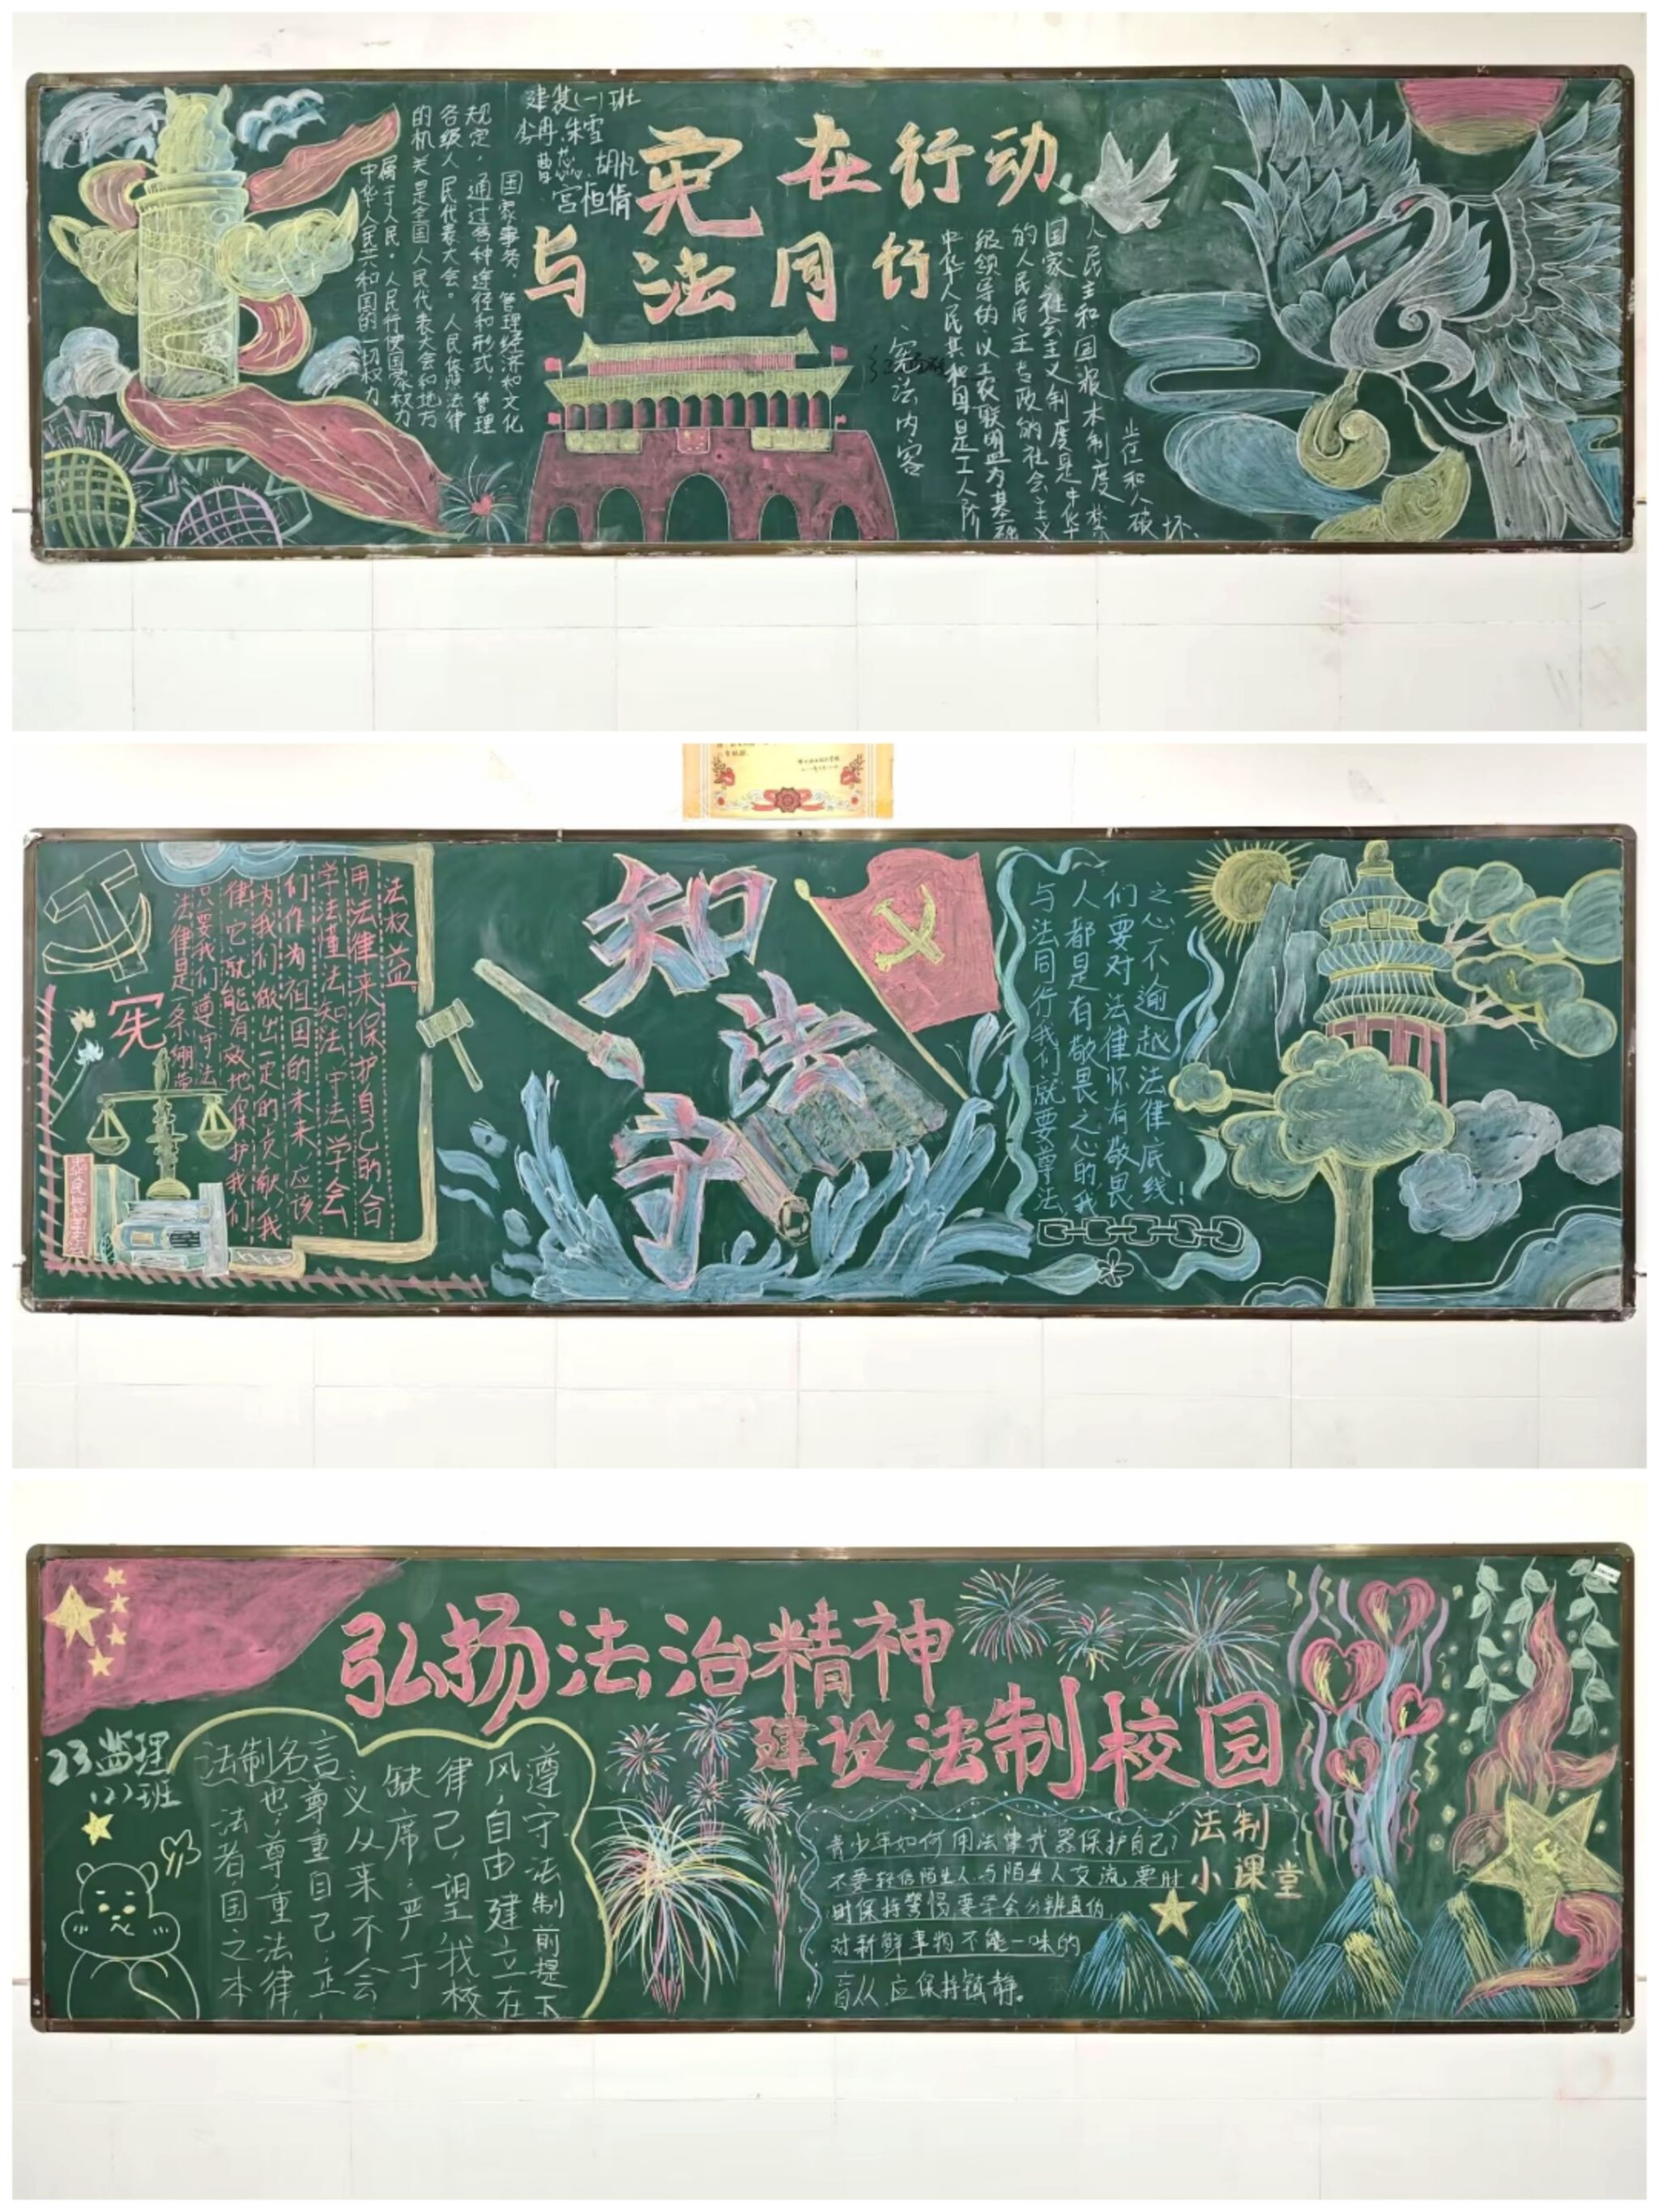 建装(一)班
李冉 朱雪
曹蕊 胡忱
宫恒倩
宪在行动
与法同行
中华人民共和国的一切权力
属于人民。人民行使国家权力
的机关是全国人民代表大会和地方
各级人民代表大会。人民依照法律
规定,通过各种途径和形式,管理
国家事务,管理经济和文化
宪法内容
中华人民共和国是工人阶
级领导的、以工农联盟为基础
的人民民主专政的社会主义
国家。社会主义制度是中华
人民主和国根本制度。禁
止任和人破坏、
宪
法律是一条绷带
只要我们遵守法
律,它就能有效地保护我们,
为我们做出一定的贡献,我
们作为祖国的未来,应该
学法懂法知法守法学会
用法律来保护自己的合
法权益。
知法守
与法同行我们就要尊法,
人都是有敬畏之心的我
们要对法律怀有敬畏
之心不逾越法律底线!
弘扬法治精神
建设法制校园
23监理
(2)班
法制名言
法者国之本
也,尊重法律,
尊重自己,正
义从来不会
缺席,严于
律己,望我校
风,自由建立在
遵守法制前提下
法制
小课堂
青少年如何用法律武器保护自己?
不要轻信陌生人,与陌生人交流要时
时保持警惕,要学会分辨真伪,
对新鲜事物不能一味的
盲从,应保持镇静。